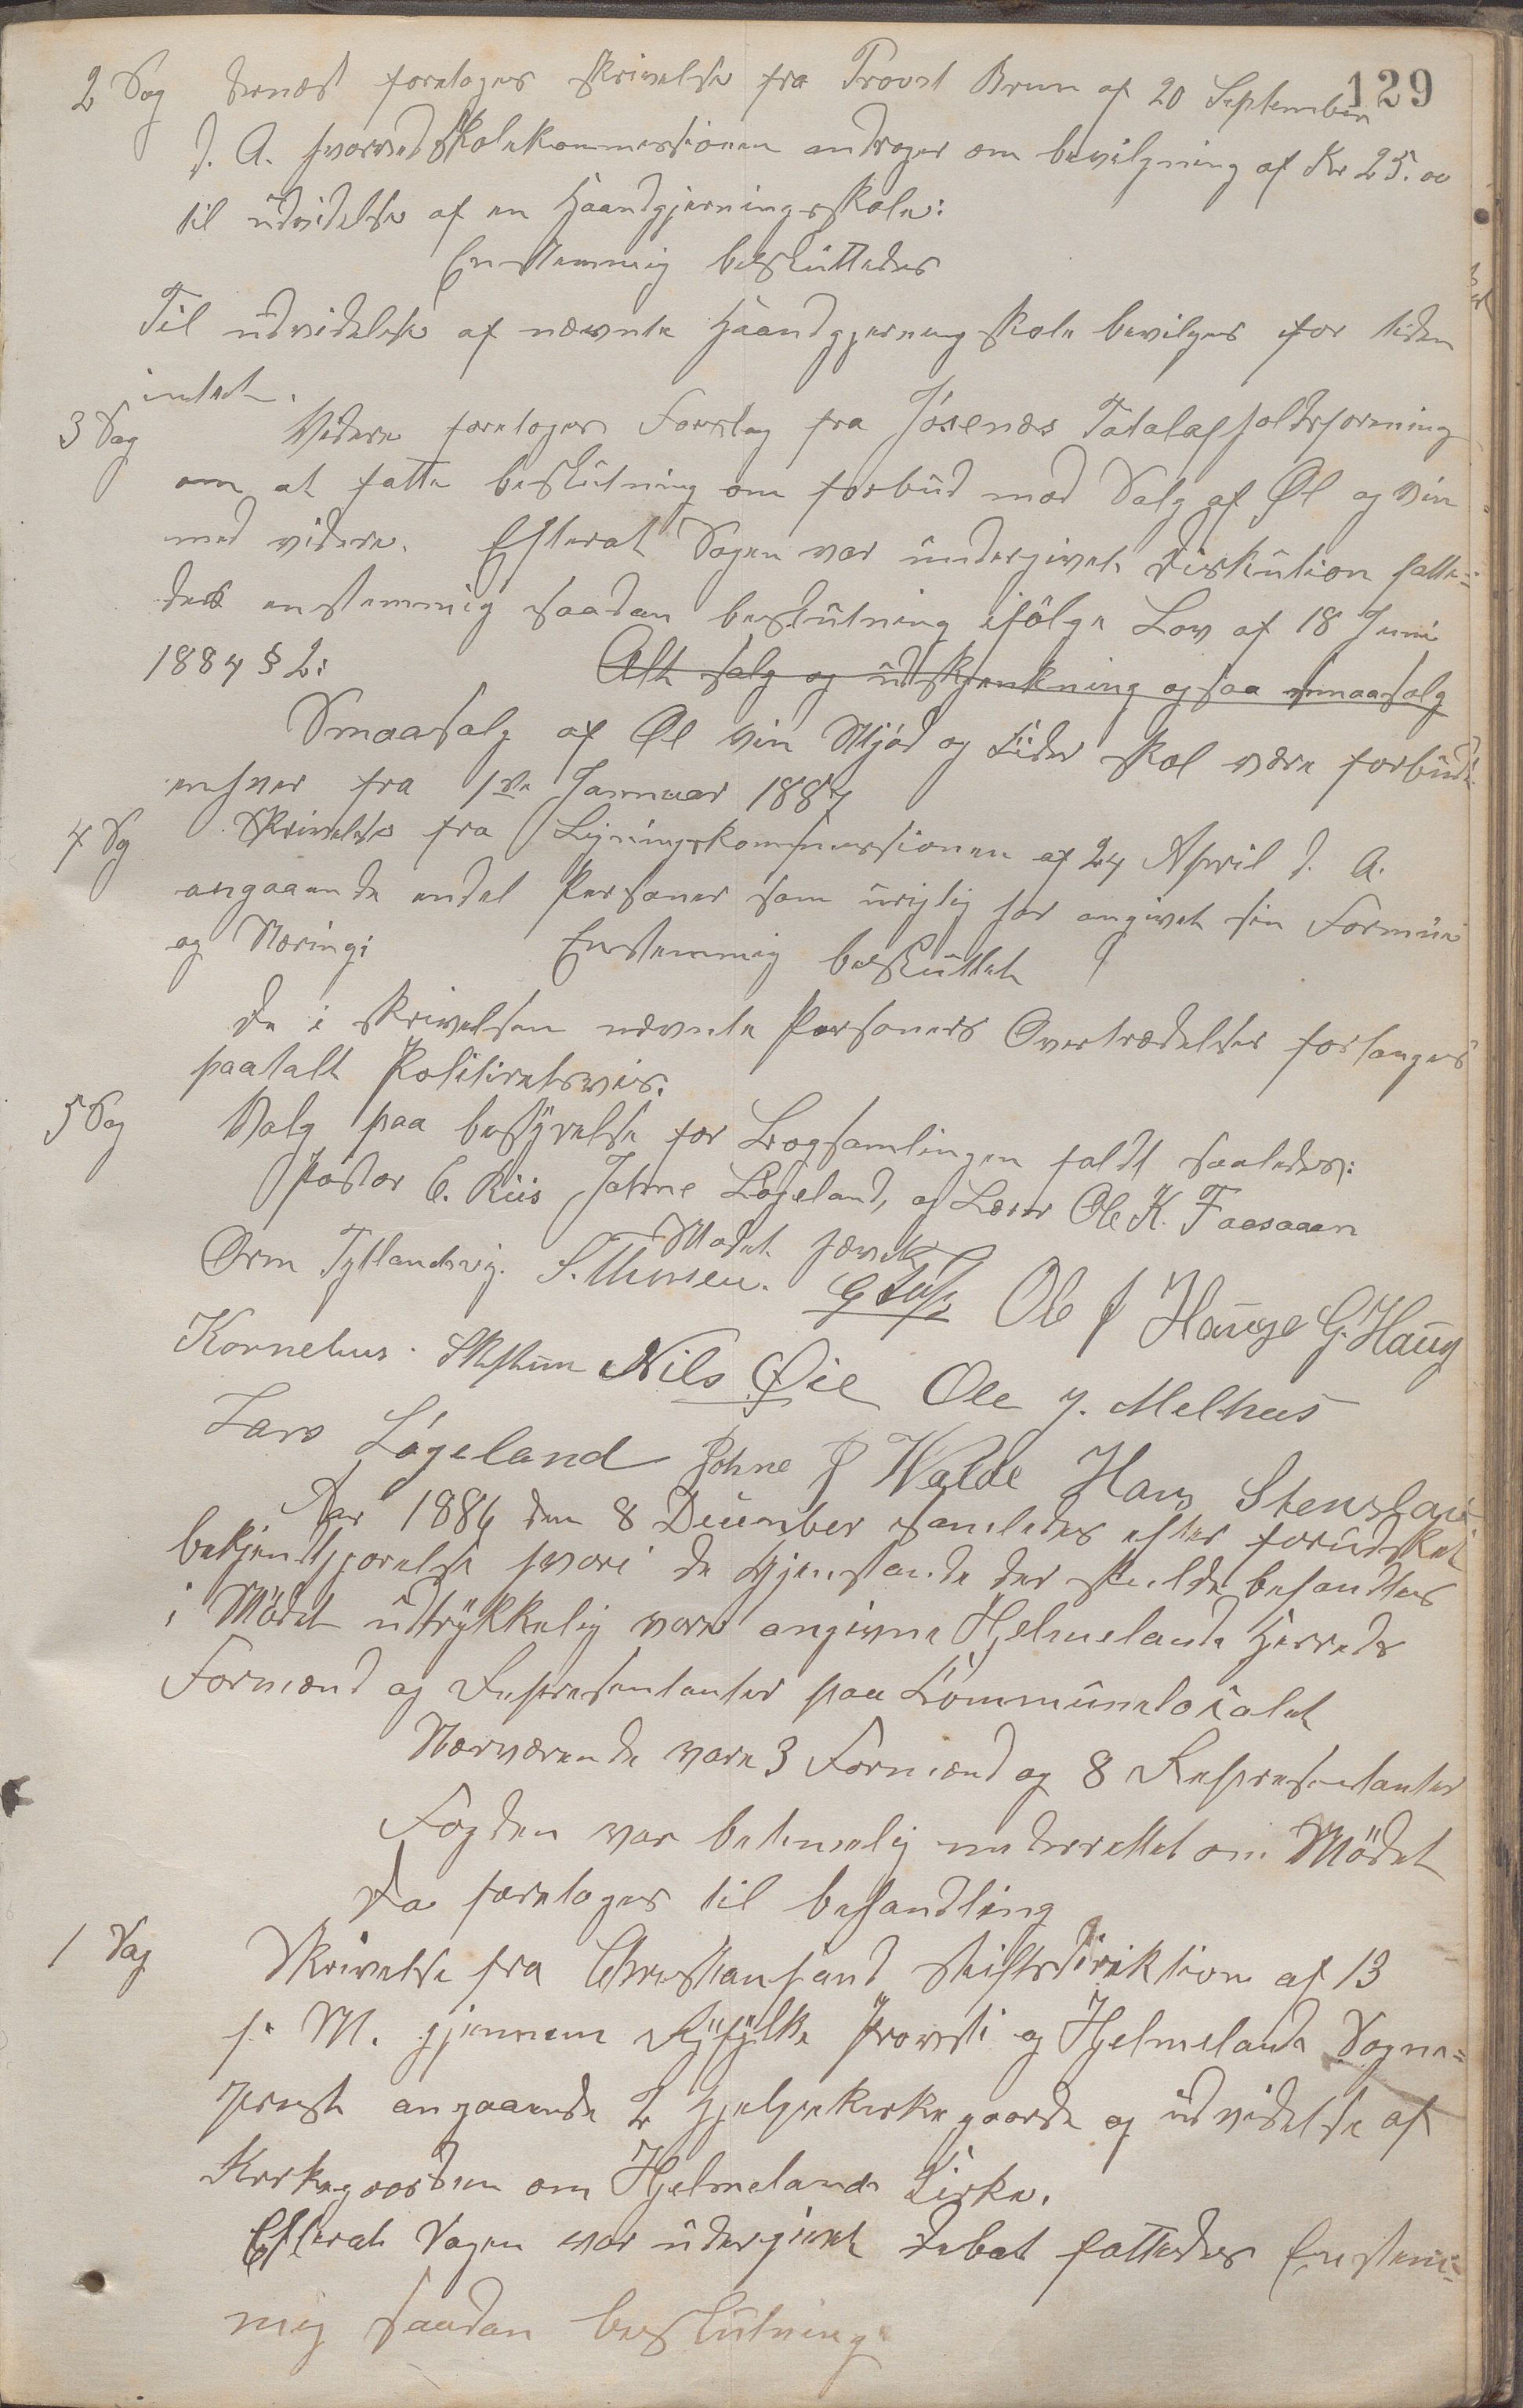 129
2 Sag dernæst foretoges skrivelse fra Provst Brun af 20 September
d. A. hvorved Skolekommissionen androger om bevilgning af Kr 25.00
til udvidelse af en Haandgjerningsskole:
Enstemmig besluttedes
Til udvidelse af nævnte Haandgjerningskole bevilges for tiden
intet.
3 Sag Videre foretoges Forslag fra Jösenes Totalafholdsforening
om at fatte beslutning om forbud mod Salg af Øl og vin
med videre. Efterat Sagen var undergivet diskution fatte=
des enstemmig saadan beslutning ifölge Lov af 18 Juni
1884 § 2: Alt salg og udskjenkning og saa smaasalg
Smaasalg af Øl vin Mjöd og Sider skal være forbudt
enhver fra 1ste Januar 1887
4 Sag Skrivelse fra Ligningskommissionen af 24 April d. A.
angaaende endel Personer som urigtig har angivet sin Formue
og Næring: Enstemmig besluttet
De i skrivelsen nævnte Personers Overtrædelser forlanges
paatalt Politiretsvis.
5 Sag Valg paa bestyrelse for Bogsamlingen faldt saaledes:
Pastor C. Riis Johne Lögeland, og Lærer Ole K. Faasaaen
Mødet hævet
Orm Tytlandsvig. S. Thorsen. Ole J Hauge G. Haug
Kornelius Nils Øie Ole J. Melhus
Lars Lögeland Johne J Walde Hans Stenslan
Aar 1886 den 8 December samledes efter forudsket
bekjendtgjørelse hvori de Gjenstande der skulde behandles
i Mödet udtrykkelig vare angivne Hjelmelands Herreds
Formænd og Representanter paa Communelocalet
Nærværende vare 3 Formænd og 8 Representanter
Fogden var betimelig underrettet om Mödet
Da foretoges til behandling
1 Sag Skrivelse fra Christiansand stiftsdirektion af 13
f. M. gjennem Ryfylke Provsti og Hjelmelands Sogne=
prest angaaende 2 Hjelpekirkegaarde og udvidelse af
Kirkegaarden om Hjelmelands Kirke.
Efterat Sagen var undergivet debat fattedes Enstem=
mig saadan beslutning